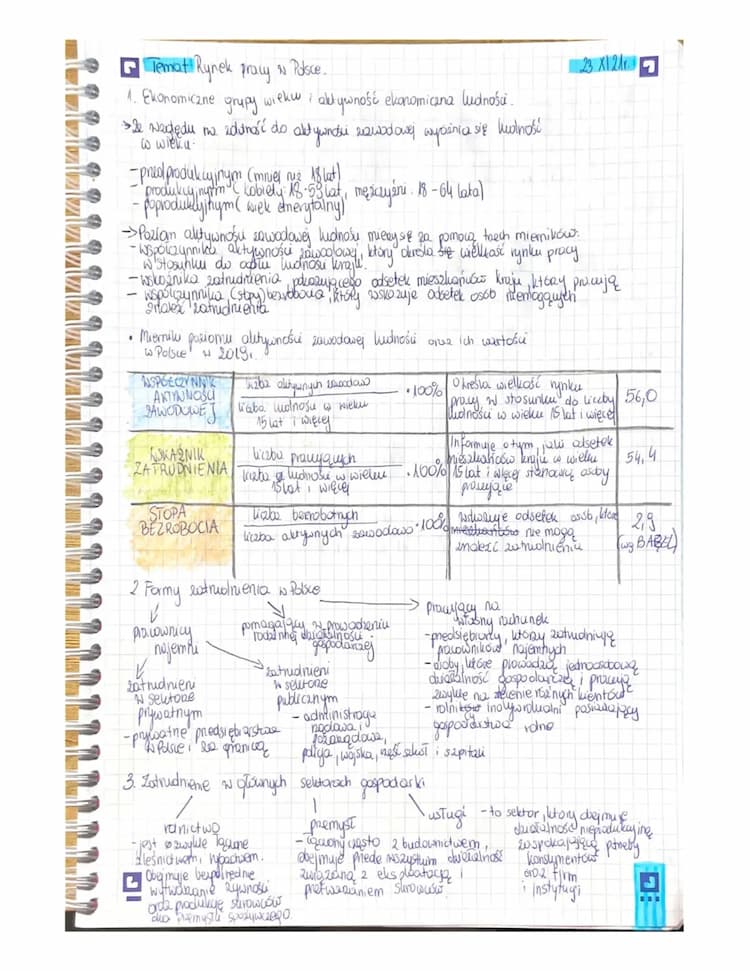 Temat Rynek pracy w Polsce.
23 XI 21r.
1. Ekonomiczne grupy wieku i aktywność ekonomiczna ludności.
→ Ze względu na zdolność do aktywności zawodowej wyróżnia się ludność
w wieku:
- przedprodukcyjnym (mniej niż 18 lat)
- produkcyjnym (kobiety 18-59 lat, mężczyźni 18-64 lata)
- poprodukcyjnym (wiek emerytalny)
→ Poziom aktywności zawodowej ludności mierzy się za pomocą trzech mierników:
- współczynnika aktywności zawodowej, który określa się wielkość rynku pracy
w stosunku do ogółu ludności kraju.
- wskaźnika zatrudnienia pokazującego odsetek mieszkańców kraju, którzy pracują
- współczynnika (stopy) bezrobocia, który wskazuje odsetek osób niemogących
znaleźć zatrudnienia
• Mierniki poziomu aktywności zawodowej ludności oraz ich wartości
w Polsce w 2019r.
WSPÓŁCZYNNIK
AKTYWNOŚCI
ZAWODOWEJ
liczba aktywnych zawodowo
liczba ludności w wieku
15 lat i więcej
· 100%
Określa wielkość rynku
pracy w stosunku do liczby
ludności w wieku 15 lat i więcej
56,0
WSKAŹNIK
ZATRUDNIENIA
liczba pracujących
liczba ludności w wieku
15 lat i więcej
· 100%
Informuje o tym, jaki odsetek
mieszkańców kraju w wieku
15 lat i więcej stanowią osoby
pracujące
54,4
STOPA
BEZROBOCIA
liczba bezrobotnych
liczba aktywnych zawodowo
· 100%
wskazuje odsetek osób, które
mieszkańców nie mogą
znaleźć zatrudnienia
2,9
(wg BAEL)
2. Formy zatrudnienia w Polsce
pracownicy
najemni
zatrudnieni
w sektorze
prywatnym
- prywatne przedsiębiorstwa
w Polsce i za granicą
zatrudnieni
w sektorze
publicznym
- administracja
rządowa i
pozarządowa,
policja, wojsko, część szkół i szpitali
pomagający w prowadzeniu
rodzinnej działalności
gospodarczej
pracujący na
własny rachunek
- przedsiębiorcy, którzy zatrudniają
pracowników najemnych
- osoby, które prowadzą jednoosobową
działalność gospodarczą i pracują
zwykle na zlecenie różnych klientów
- rolnicy indywidualni posiadający
gospodarstwa rolne
3. Zatrudnienie w głównych sektorach gospodarki
rolnictwo
- jest zwykle łączone
z leśnictwem, rybactwem.
Obejmuje bezpośrednie
wytwarzanie żywności
oraz produkcję surowców
dla przemysłu spożywczego.
przemysł
- łączony często z budownictwem,
obejmuje przede wszystkim działalność
związaną z eksploatacją i
przetwarzaniem surowców.
usługi - to sektor, który obejmuje
działalność nieprodukcyjną
zaspokajającą potrzeby
konsumentów
oraz firm
i instytucji